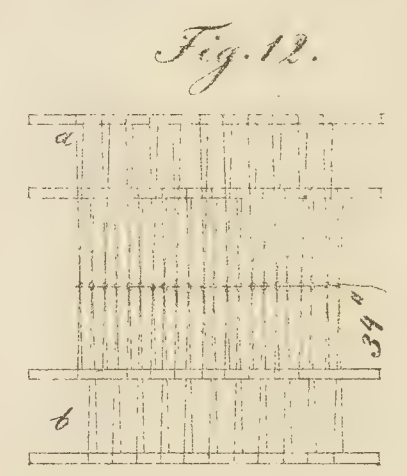 Fig. 12.
a
34 a
b